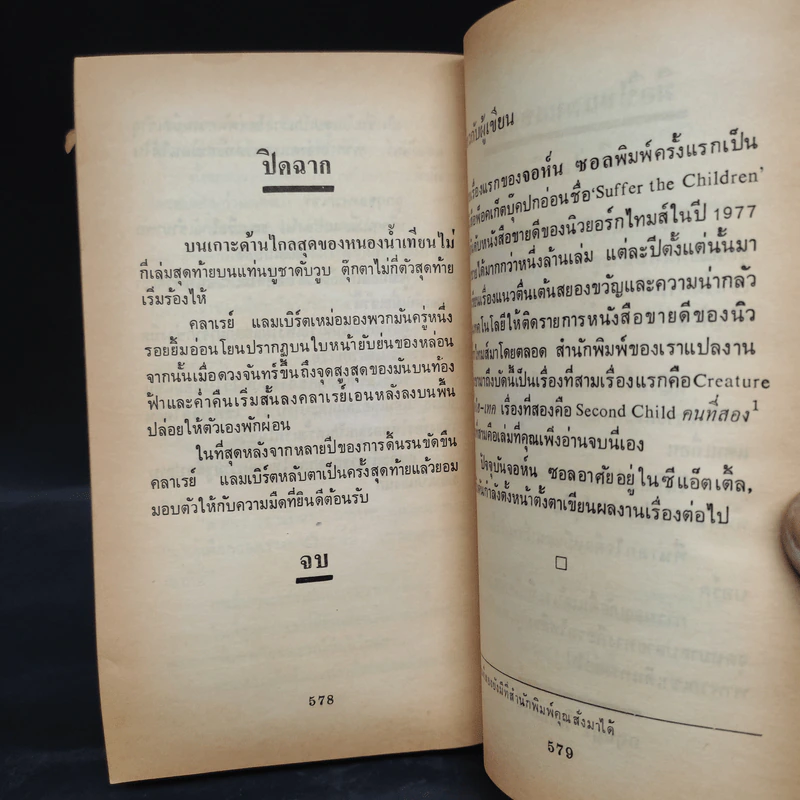 ปิดฉาก
บนเกาะด้านไกลสุดของหนองน้ำเทียนไม่
กี่เล่มสุดท้ายบนแท่นบูชาดับวูบ ตุ๊กตาไม่กี่ตัวสุดท้าย
เริ่มร้องไห้
คลาเรย์ แลมเบิร์ตเหม่อมองพวกมันครู่หนึ่ง
รอยยิ้มอ่อนโยนปรากฏบนใบหน้ายับย่นของหล่อน
จากนั้นเมื่อดวงจันทร์ขึ้นถึงจุดสูงสุดของมันบนท้อง
ฟ้าและค่ำคืนเริ่มสั้นลงคลาเรย์เอนหลังลงบนพื้น
ปล่อยให้ตัวเองพักผ่อน
ในที่สุดหลังจากหลายปีของการดิ้นรนขัดขืน
คลาเรย์ แลมเบิร์ตหลับตาเป็นครั้งสุดท้ายแล้วยอม
มอบตัวให้กับความมืดที่ยินดีต้อนรับ
จบ
578
กับผู้เขียน
เรื่องแรกของจอห์น ซอลพิมพ์ครั้งแรกเป็น
พ็อคเก็ตบุ๊คปกอ่อนชื่อ 'Suffer the Children'
หนังสือขายดีของนิวยอร์กไทมส์ในปี 1977
ได้มากกว่าหนึ่งล้านเล่ม แต่ละปีตั้งแต่นั้นมา
เรื่องแนวตื่นเต้นสยองขวัญและความน่ากลัว
เทคโนโลยีให้ติดรายการหนังสือขายดีของนิว
ไทมส์มาโดยตลอด สำนักพิมพ์ของเราแปลงาน
มาถึงบัดนี้เป็นเรื่องที่สามเรื่องแรกคือ Creature
เรื่องที่สองคือ Second Child คนที่สอง¹
คือเล่มที่คุณเพิ่งอ่านจบนี่เอง
ปัจจุบันจอห์น ซอลอาศัยอยู่ในซีแอ๊ตเติ้ล,
กำลังตั้งหน้าตั้งตาเขียนผลงานเรื่องต่อไป
ยังมีที่สำนักพิมพ์คุณสั่งมาได้
579